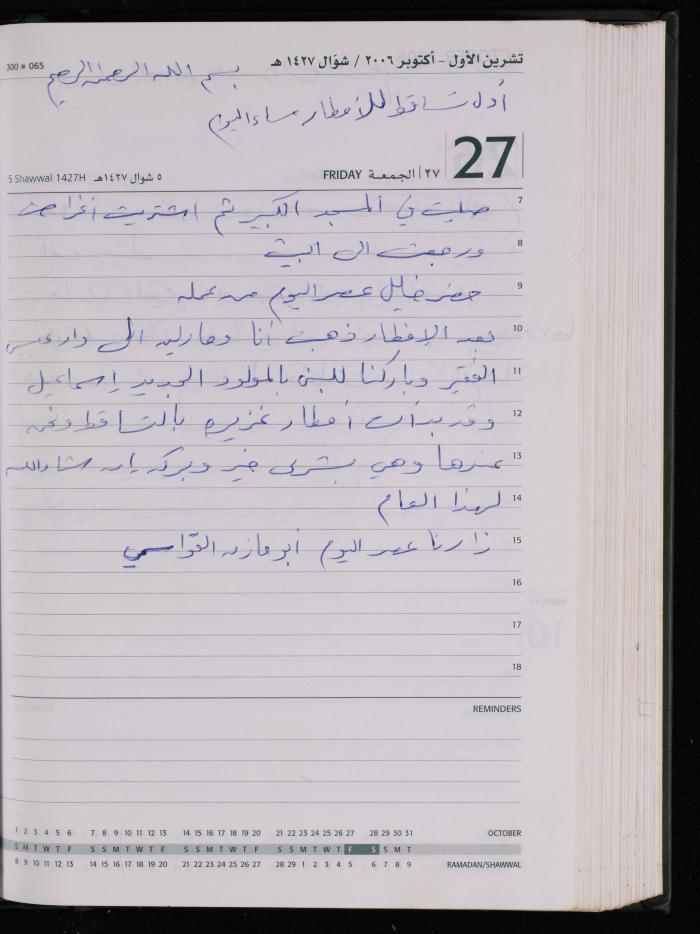 تشرين الأول - أكتوبر ٢٠٠٦ / شوّال ١٤٢٧ هـ
300 ■ 065
بسم الله الرحمن الرحيم
أول تساقط للأمطار مساء اليوم
27
FRIDAY ٢٧ | الجمعـة
5 Shawwal 1427H ٥ شوال ١٤٢٧هـ
7 صليت في المسجد الكبير ثم اشتريت أغراض
8 ورجعت الى البيت
9 حضر خليل عصر اليوم من عمله
10 بعد الافطار ذهبت أنا ومارلين الى دار عيسى
11 الفقير وباركنا للبنى بالمولود الجديد إسماعيل
12 وقد بدأت أمطار غزيره بالتساقط ونحن
13 عندها وهي بشرى خير وبركه إن شاء الله
14 لهذا العام
15 زارنا عصر اليوم أبو مازن القواسمي
16
17
18
REMINDERS
1 2 3 4 5 6 7 8 9 10 11 12 13 14 15 16 17 18 19 20 21 22 23 24 25 26 27 28 29 30 31 OCTOBER
S M T W T F S S M T W T F S S M T W T F S S M T W T F S S M T
8 9 10 11 12 13 14 15 16 17 18 19 20 21 22 23 24 25 26 27 28 29 1 2 3 4 5 6 7 8 9 RAMADAN/SHAWWAL